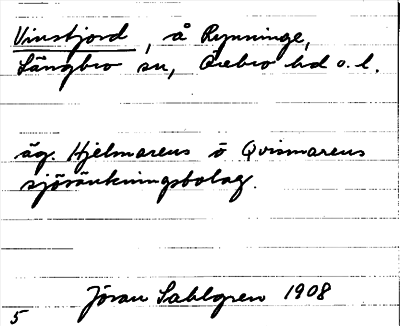 Vinsfjord, å Rynninge,
Längbro sn, Örebro hd o. l.
äg. Hjelmarens o Qvismarens
sjösänkningsbolag.
Jöran Sahlgren 1908
5